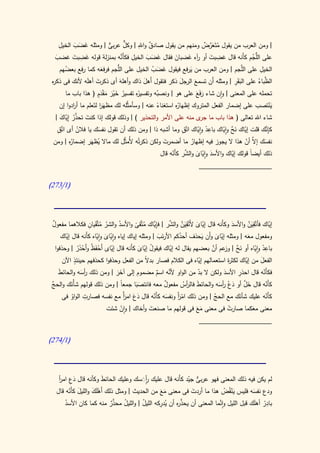 | ومن العرب من يقول مُتَعَرِّضٌ ومنهم من يقول صادقٌ واللهِ | وكلٌّ عربيٌّ | ومثله غضبَ الخيل
على اللُّجُم كأنه قال غضِبت أو رآه غضبانَ فقال غضبَ الخيل فكأنه بمنزلة قوله غضبتِ غضبَ
الخيل على اللُّجم | ومن العرب من يَرفع فيقول غضبُ الخيل على اللُّجم فرفعه كما رفع بعضُهم
الظِّباءُ على البَقَر | ومثله أن تسمع الرجلَ ذكر فتقول أهلَ ذاك وأهلَه أي ذكرتَ أهلَه لأنك فى ذكره
تحمله على المعنى | وإن شاء رَفَعَ على هو | ونصبُه وتفسيرُه تفسيرُ خيرَ مَقْدَمٍ | هذا باب ما
يَنْتصب على إضمار الفعل المتروك إظهارُه استغناءً عنه | وسأمثّله لك مظهَرا لتَعلم ما أرادوا إن
شاء الله تعالى | هذا باب ما جرى منه على الأمر والتحذير ( | وذلك قولك إذا كنت تحذِّرُ إيّاكَ |
كإنّك قلت إيّاك نحِّ وإيّاك باعِدْ وإيّاك اتّقِ وما أشبه ذا | ومن ذلك أن تقول نفسَك يا فلانُ أى اتّقِ
نفسَك إلاّ أنّ هذا لا يجوز فيه إظهارُ ما أضمرتَ ولكن ذكرتُه لأُمثّلَ لك مالا يُظهر إضمارُه | ومن
ذلك أيضاً قولُك إيّاك والأسدَ وإيّاىَ والشَّرَ كأنّه قال
(273/1)
إيّاك فأتّقِيَنَّ والأسدَ وكأنه قال إيّاىَ لأَتّقِينَّ والشَّرَ | فإيّاكَ متّقىً والأسدُ والشرُ مُتَّقَيانِ فكلاهما مفعولٌ
ومفعول معه | ومثله إيّاىَ وأن يَحذف أحدُكم الأرنبَ | ومثله إياك وإياه وإيّاىَ وإيّاه كأنه قال إيّاك
باعِدْ وإيّاه أو نَحِّ | وزعم أنّ بعضهم يقال له إيّاك فيقولُ إيّاىَ كأنه قال إيّاىَ أَحْفَظُ وأَحْذَرُ | وحذفوا
الفعل من إيّاك لكثرة استعمالهِم إيّاه فى الكلام فصار بدلاً من الفعل وحذفوا كحذفهم حينئِذٍ الآن
فكأنّه قال احذرِ الأسدَ ولكن لا بدّ من الواو لأنّه اسمٌ مضموم إلى آخَر | ومن ذلك رأسَه والحائطَ
كأنّه قال خَلِّ أو دَعْ رأسَه والحائطَ فالرأسُ مفعولٌ معه فانتصَبا جمعياً | ومن ذلك قولهم شأنَك والحجَّ
كأنّه عليك شأنَك مع الحجّ | ومن ذلك امْرَأً ونفسَه كأنّه قال دعِ امرأً مع نفسه فصارتِ الواوُ فى
معنى معَكما صارتْ فى معنى مَعَ فى قولهم ما صنعتَ وأخاك | وإنْ شئت
(274/1)
لم يكن فيه ذلك المعنى فهو عربيٌّ جيّد كأنه قال عليك رأسك وعليك الحائطَ وكأنّه قال دَعِ امرأً
ودعْ نفسَه فليس يَنْقُضُ هذا ما أردتَ فى معنى مَعَ من الحديث | ومثل ذلك أَهْلَكَ واللَيلَ كأنّه قال
بادِرْ أهلَك قبل الليل وإنّما المعنى أن يحذِّرَه أن يُدرِكه الليلُ | والليلُ محذَّرٌ منه كما كان الأسدُ